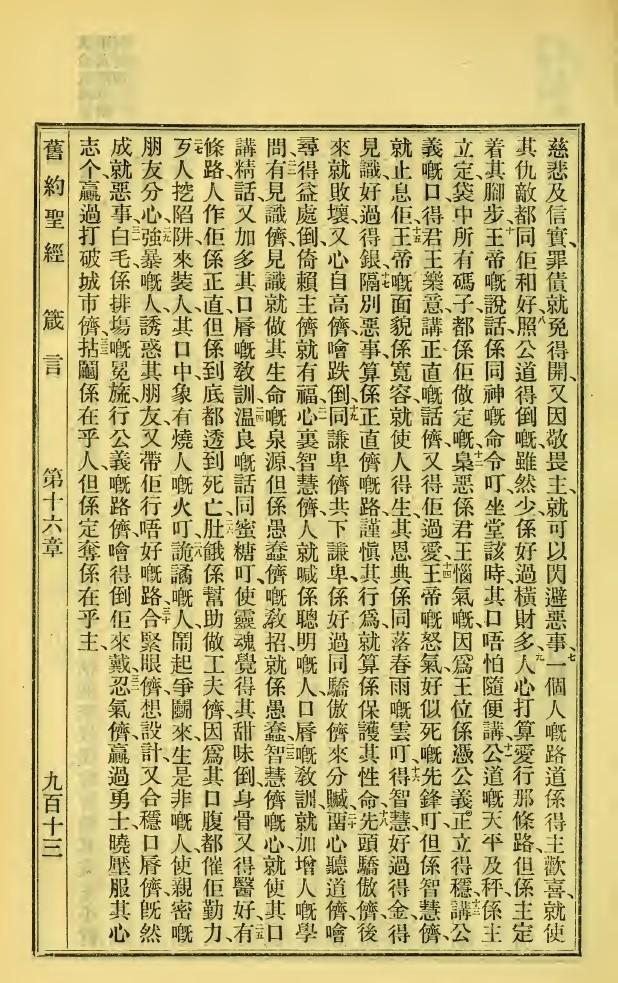 慈悲及信實、罪債就免得開、又因敬畏主、就可以閃避惡事、七一個人嘅路道係得主歡喜、就使
其仇敵都同佢和好、八照公道得倒嘅、雖然少、係好過橫財多、九人心打算愛行那條路、但係主定
着其脚步、十王帝嘅說話係同神嘅命令叮、坐堂該時、其口唔怕隨便講、十一公道嘅天平及秤係主
立定、袋中所有碼子都係佢做定嘅、十二臬惡係君王惱氣嘅、因爲王位係憑公義正立得穩、十三講公
義嘅口得君王樂意、講正直嘅話儕又得佢過愛、十四王帝嘅怒氣好似死嘅先鋒叮、但係智慧儕、
就止息佢、十五王帝嘅面貌係寬容、就使人得生、其恩典係同落春雨嘅雲叮、十六得智慧好過得金、得
見識好過得銀、十七隔別惡事、算係正直儕嘅路、謹慎其行爲、就算係保護其性命、十八先頭驕傲、儕後
來就敗壞、又心自高儕噲跌倒、十九同謙卑儕共下謙卑、係好過同驕傲儕來分贓、二十畱心聽道儕、噲
尋得益處倒、倚賴主儕就有福、二一心裏智慧儕、人就喊係聰明嘅人、口唇嘅敎訓、就加增人嘅學
問、二二有見識儕、見識就做其生命嘅泉源、但係愚蠢儕嘅敎招就係愚蠢、二三智慧儕嘅心、就使其口
講精話、又加多其口唇嘅敎訓、二四温良嘅話同蜜糖叮、使靈魂覺得其甜味倒、身骨又得醫好、二五有
條路人作佢係正直、但係到底都透到死亡、二六肚餓係幫助做工夫儕、因爲其口腹都催佢勤力、
二七歹人挖陷阱來裝人、其口中象有燒人嘅火叮、二八詭譎嘅人鬧起爭鬭來、生是非嘅人使親密嘅
朋友分心、二九強暴嘅人、誘惑其朋友、又帶佢行唔好嘅路、三十合緊眼儕想設計、又合穩口唇儕、旣然
成就惡事、三一白毛係排塲嘅冕旒、行公義嘅路儕、噲得倒佢來戴、三二忍氣儕贏過勇士、曉壓服其心
志个、贏過打破城市儕、三三拈鬮係在乎人、但係定奪係在乎主、
舊約聖經　箴言　第十六章　九百十三